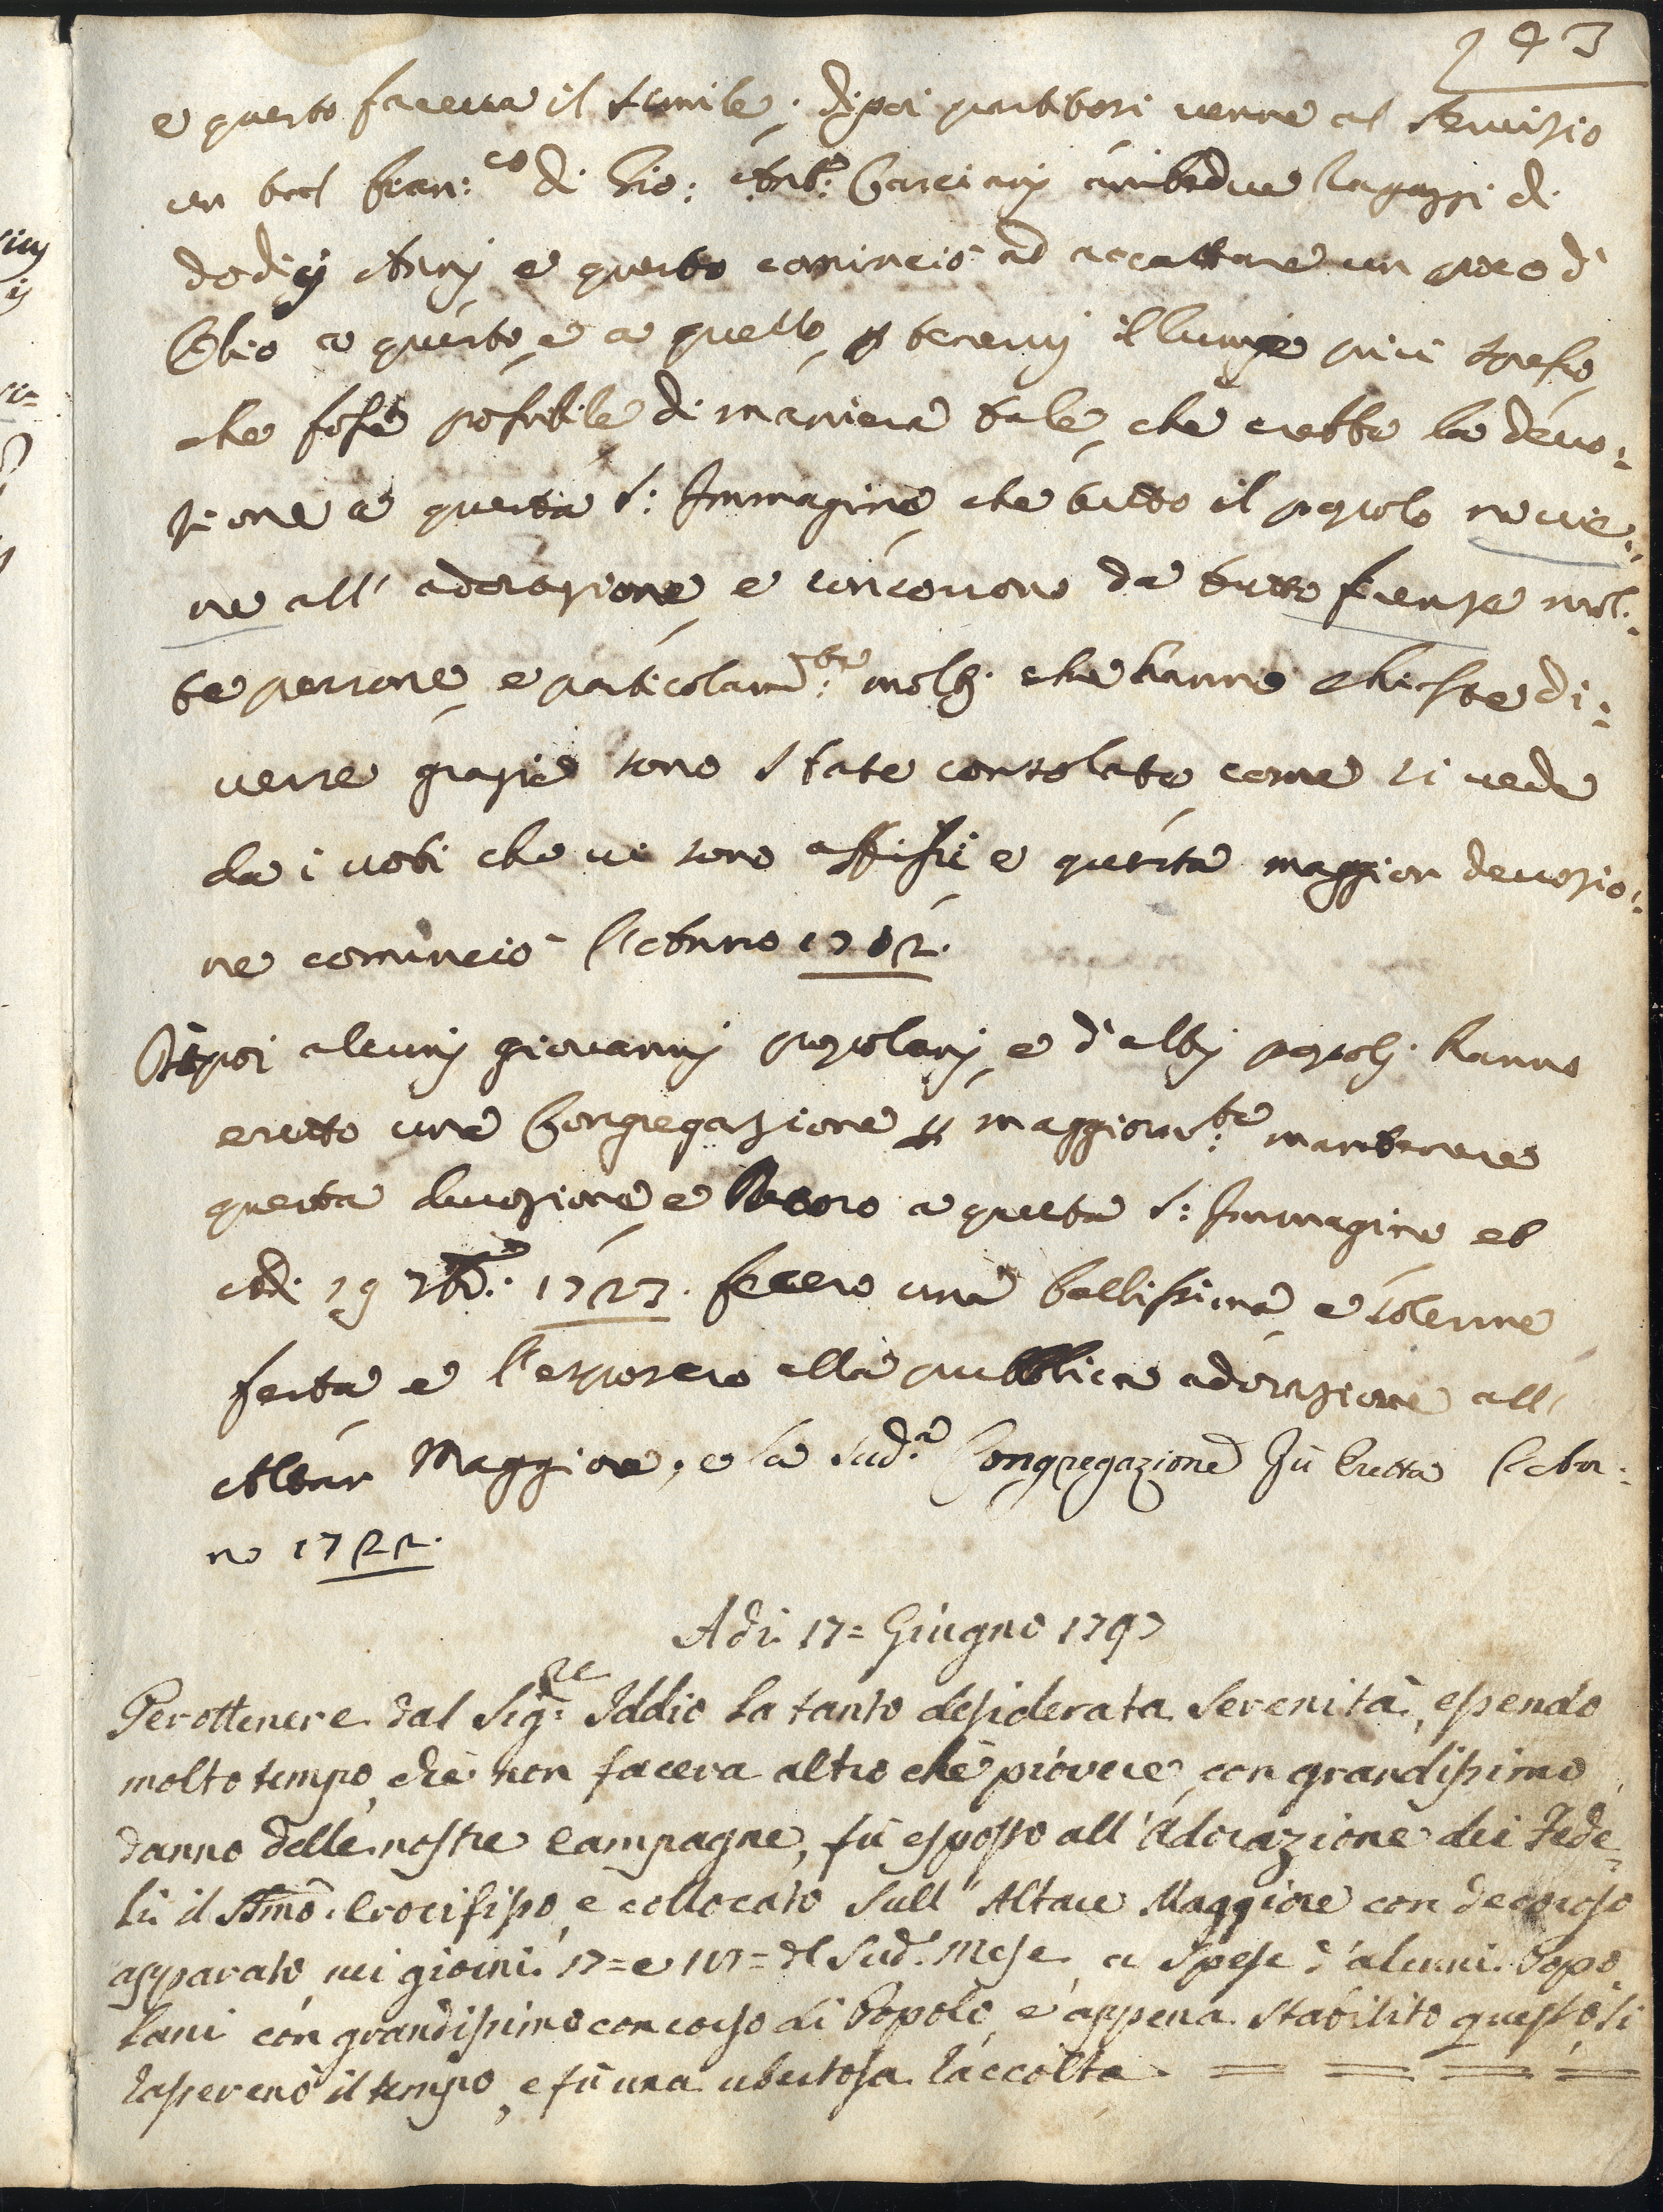 193
e questo faceva il simile; dipoi partitosi venne al servizio
un tal Fran:co di Gio: Ant:o Casciani ambedue ragazzi di
dodicij Annj e questo cominciò ad accattare un poco d'
Olio a questo, e a quello, p tenervj il lume più spesso,
che fosse possibile di maniera tale, che crebbe la devo:
zione a questa S: Immagine, che tutto il popolo ne vie:
ne all' adorazione, e concorrono da tutto Firenze mol:
te persone, e particolarm:te moltj. che hanno chieste di:
verse grazie sono state consolate come si vede
da i voti che vi sono affissi e questa maggior devozio:
ne cominciò l'Anno 1702.
Dipoi alcunj giovannj popolanj, e d'altrj popolj. hanno
eretto una Congregazione p maggiorm:te mantenere
questa devozione e decoro a questa S: Immagine et
Adi 19 7bre: 1723. fecero una bellissima, e solenne
festa e l'esposero alla pubblica adorazione all'
Altar Maggiore, e la sud:a Congregazione fù Eretta l'An:
no 1722.
Adi. 17= Giugno 1797
Per ottenere dal Sig:re Iddio la tanto desiderata Serenità, essendo
molto tempo, che non faceva altro che piovere, con grandissimo
danno delle nostre Campagne, fù esposto all'Adorazione dei Fede-
li il SSmo. Crocifisso, e collocato sull'Altare Maggiore con decoroso
apparato nei giorni. 17= e 18= dl Sud. Mese, a spese d'alcuni. Popo-
lani con grandissimo concorso di Popolo, e appena stabilito questo, si
rasserenò il tempo, e fù una ubertosa raccolta = = = =